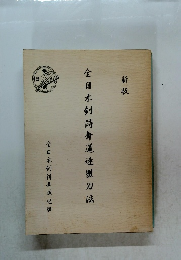 新版
全日本剣詩舞道連盟刀法
全日本剣詩舞道連盟